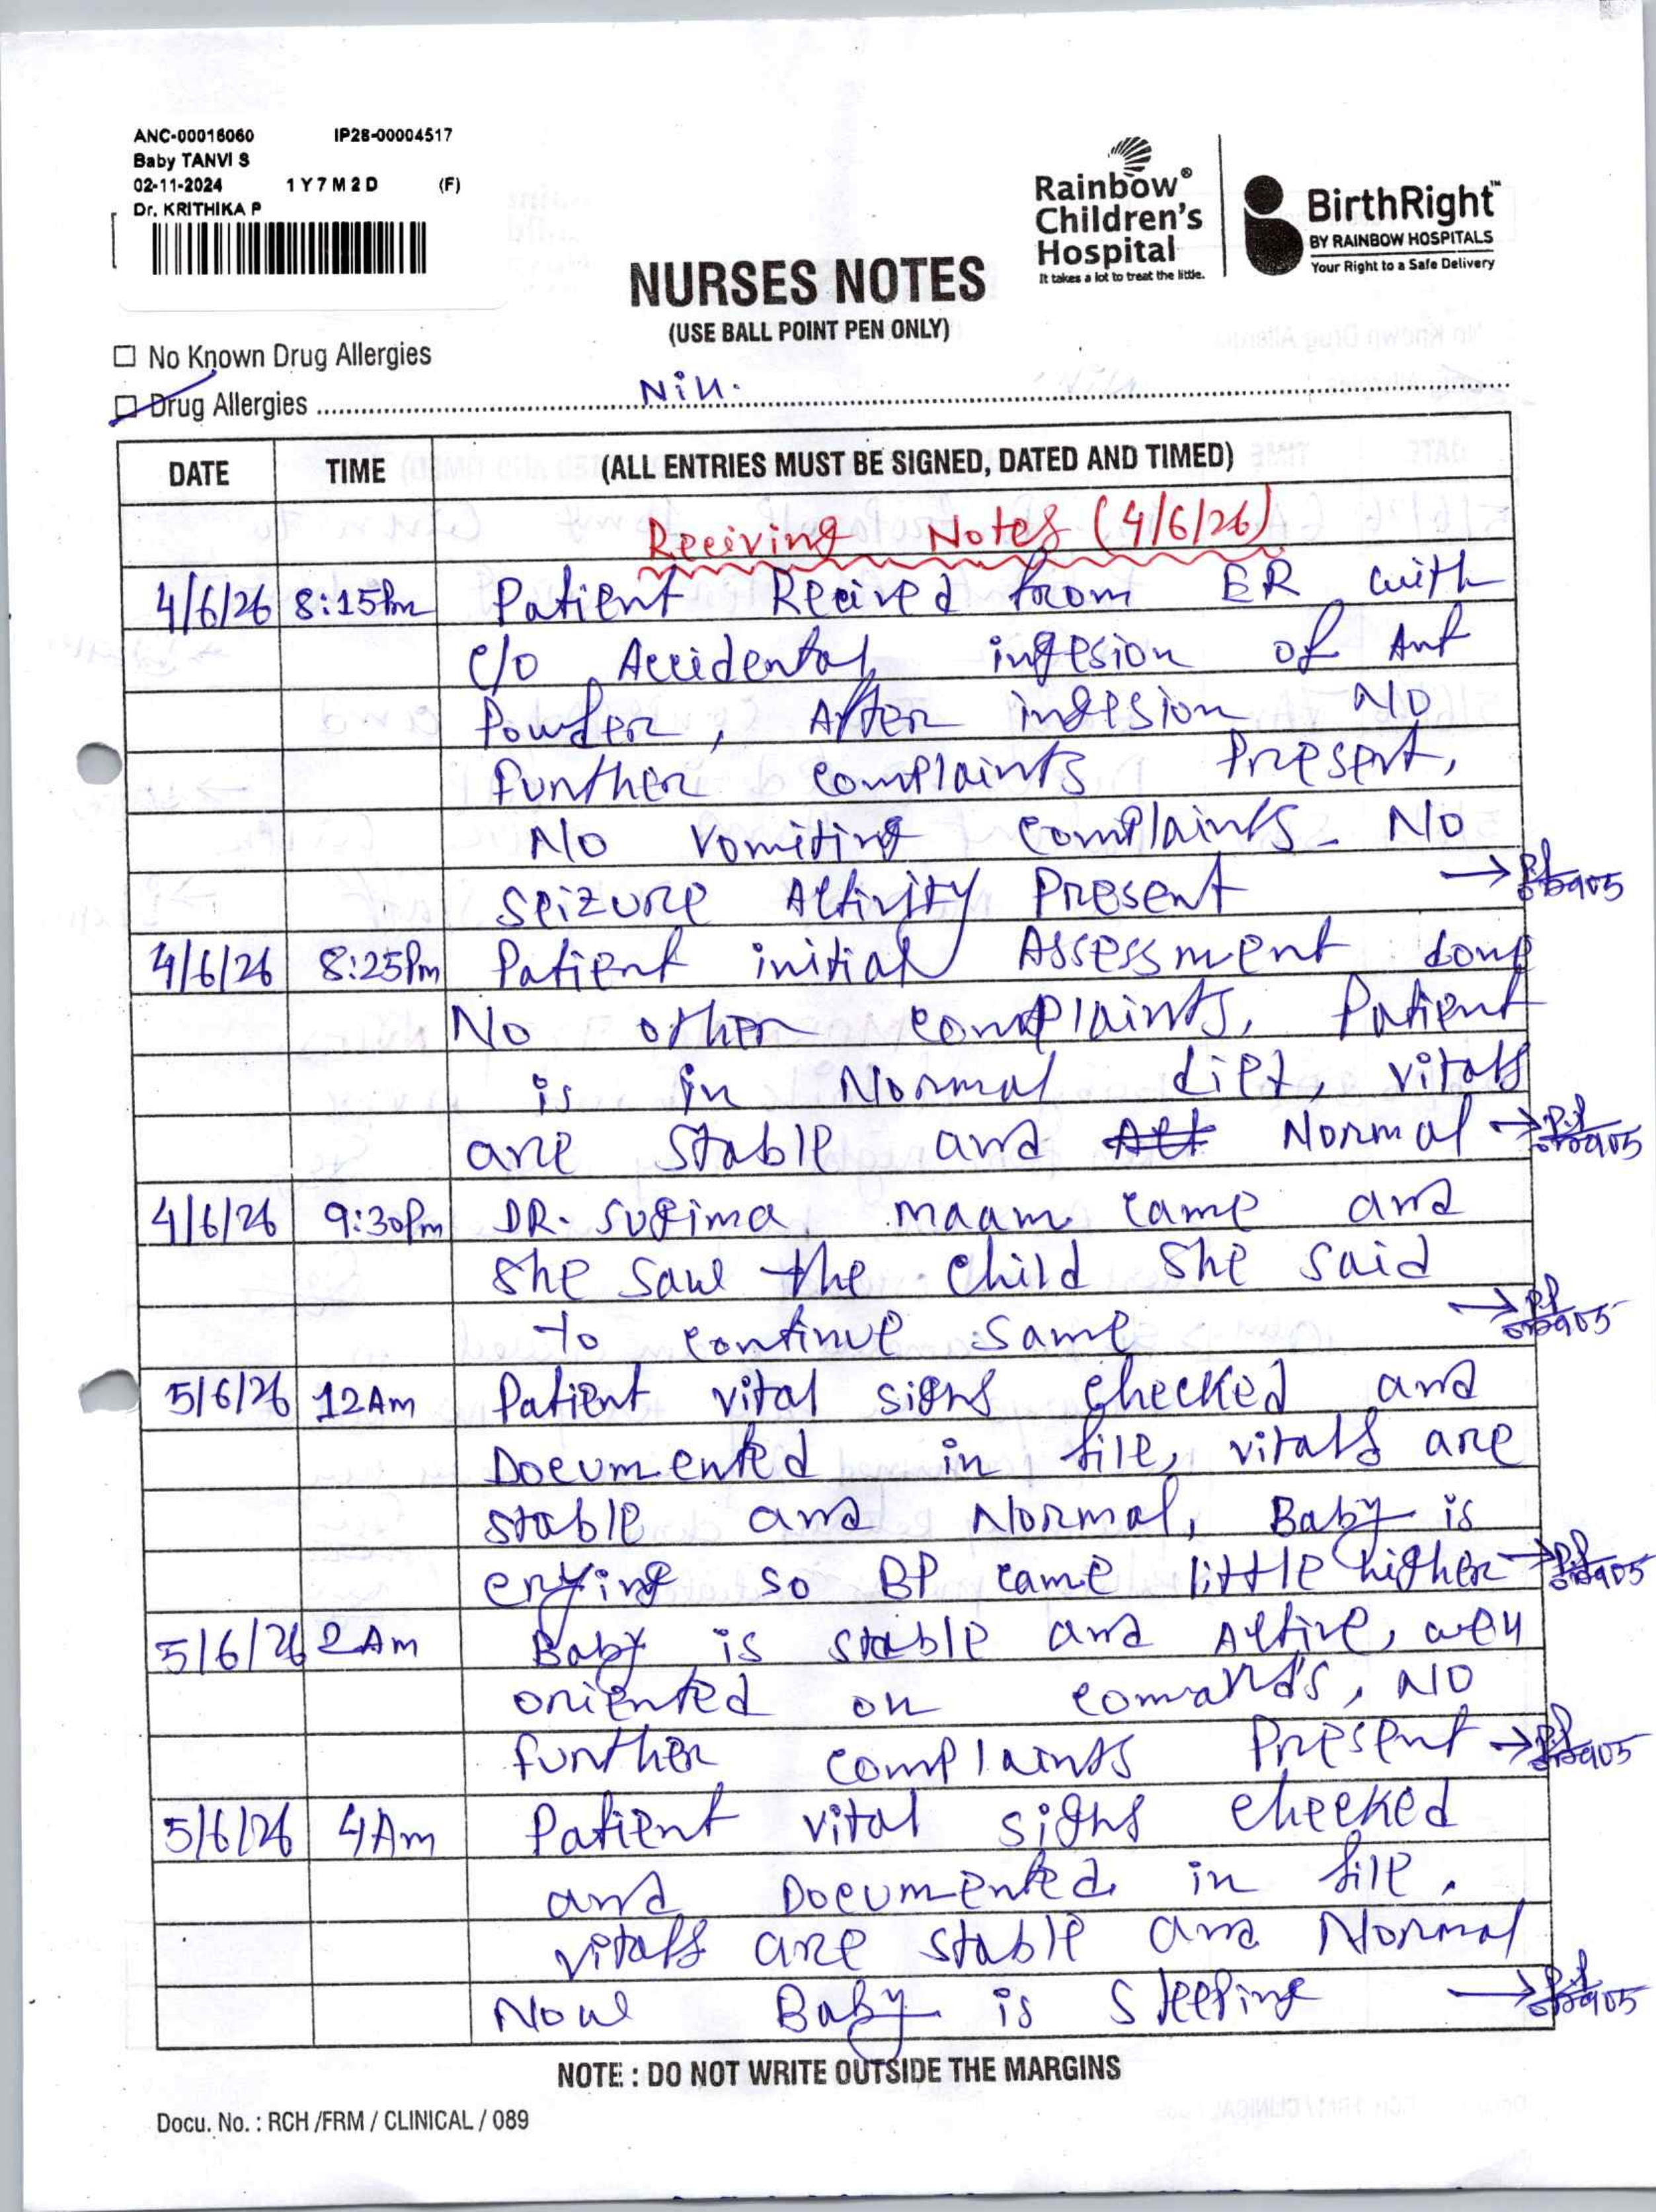 ANC-00016060 IP28-00004517
Baby TANVI S
02-11-2024 1 Y 7 M 2 D (F)
Dr. KRITHIKA P
Rainbow® Children's Hospital
It takes a lot to treat the little.
BirthRight™
BY RAINBOW HOSPITALS
Your Right to a Safe Delivery
NURSES NOTES
(USE BALL POINT PEN ONLY)
☐ No Known Drug Allergies
☐ Drug Allergies Nill.
DATE TIME (ALL ENTRIES MUST BE SIGNED, DATED AND TIMED)
Receiving Notes (4/6/26)
4/6/26 8:15Pm Patient Recived from ER with
c/o Accidental ingesion of Ant
Powder, After ingesion No
further complaints Present,
No vomiting complaints. No
seizure Activity Present
4/6/26 8:25Pm Patient initial Assessment done
No other complaints, Patient
is in Normal diet, vitals
are stable and Normal
4/6/26 9:30Pm DR. Sugima maam came and
she saw the child she said
to continue same
5/6/26 12Am Patient vital signs checked and
Documented in file, vitals are
stable and Normal, Baby is
crying so BP came little higher
5/6/26 2Am Baby is stable and Active, well
oriented on comands, No
further complaints Present
5/6/26 4Am Patient vital signs checked
and Documented in file.
vitals are stable and Normal
Now Baby is sleeping
NOTE : DO NOT WRITE OUTSIDE THE MARGINS
Docu. No. : RCH /FRM / CLINICAL / 089